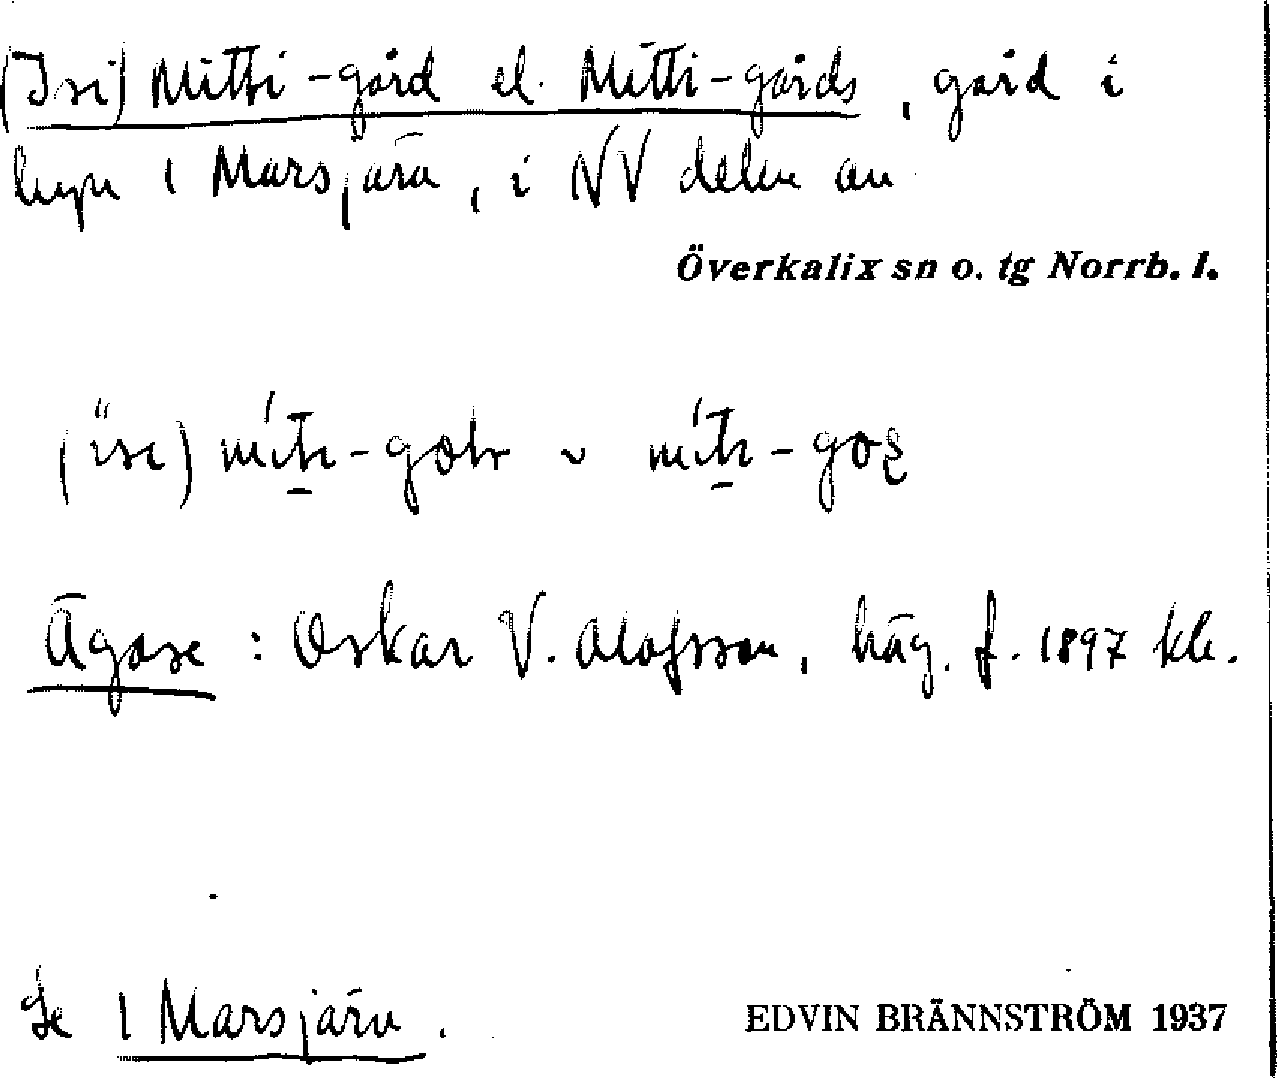 (Isi) Mitti-gård el. Mitti-gårds, gård i
byn 1 Marsjärv, i NV delen av
Överkalix sn o. tg Norrb. l.
Ägare: Oskar V. Olofsson, häg. f. 1897 kle.
Se 1 Marsjärv.
EDVIN BRÄNNSTRÖM 1937